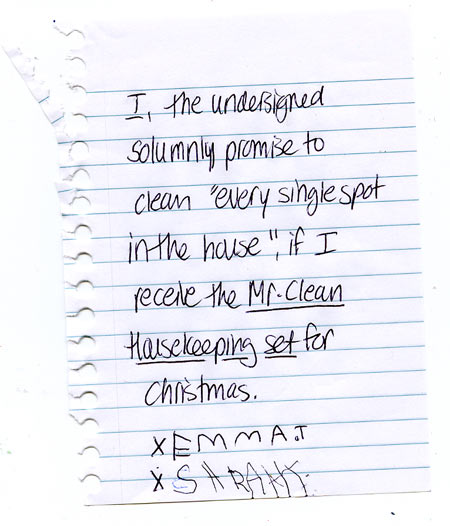 I, the undersigned
solumnly promise to
clean "every single spot
in the house", if I
receive the Mr. Clean
Housekeeping set for
Christmas.
X EMMA.T
X SARAHK.